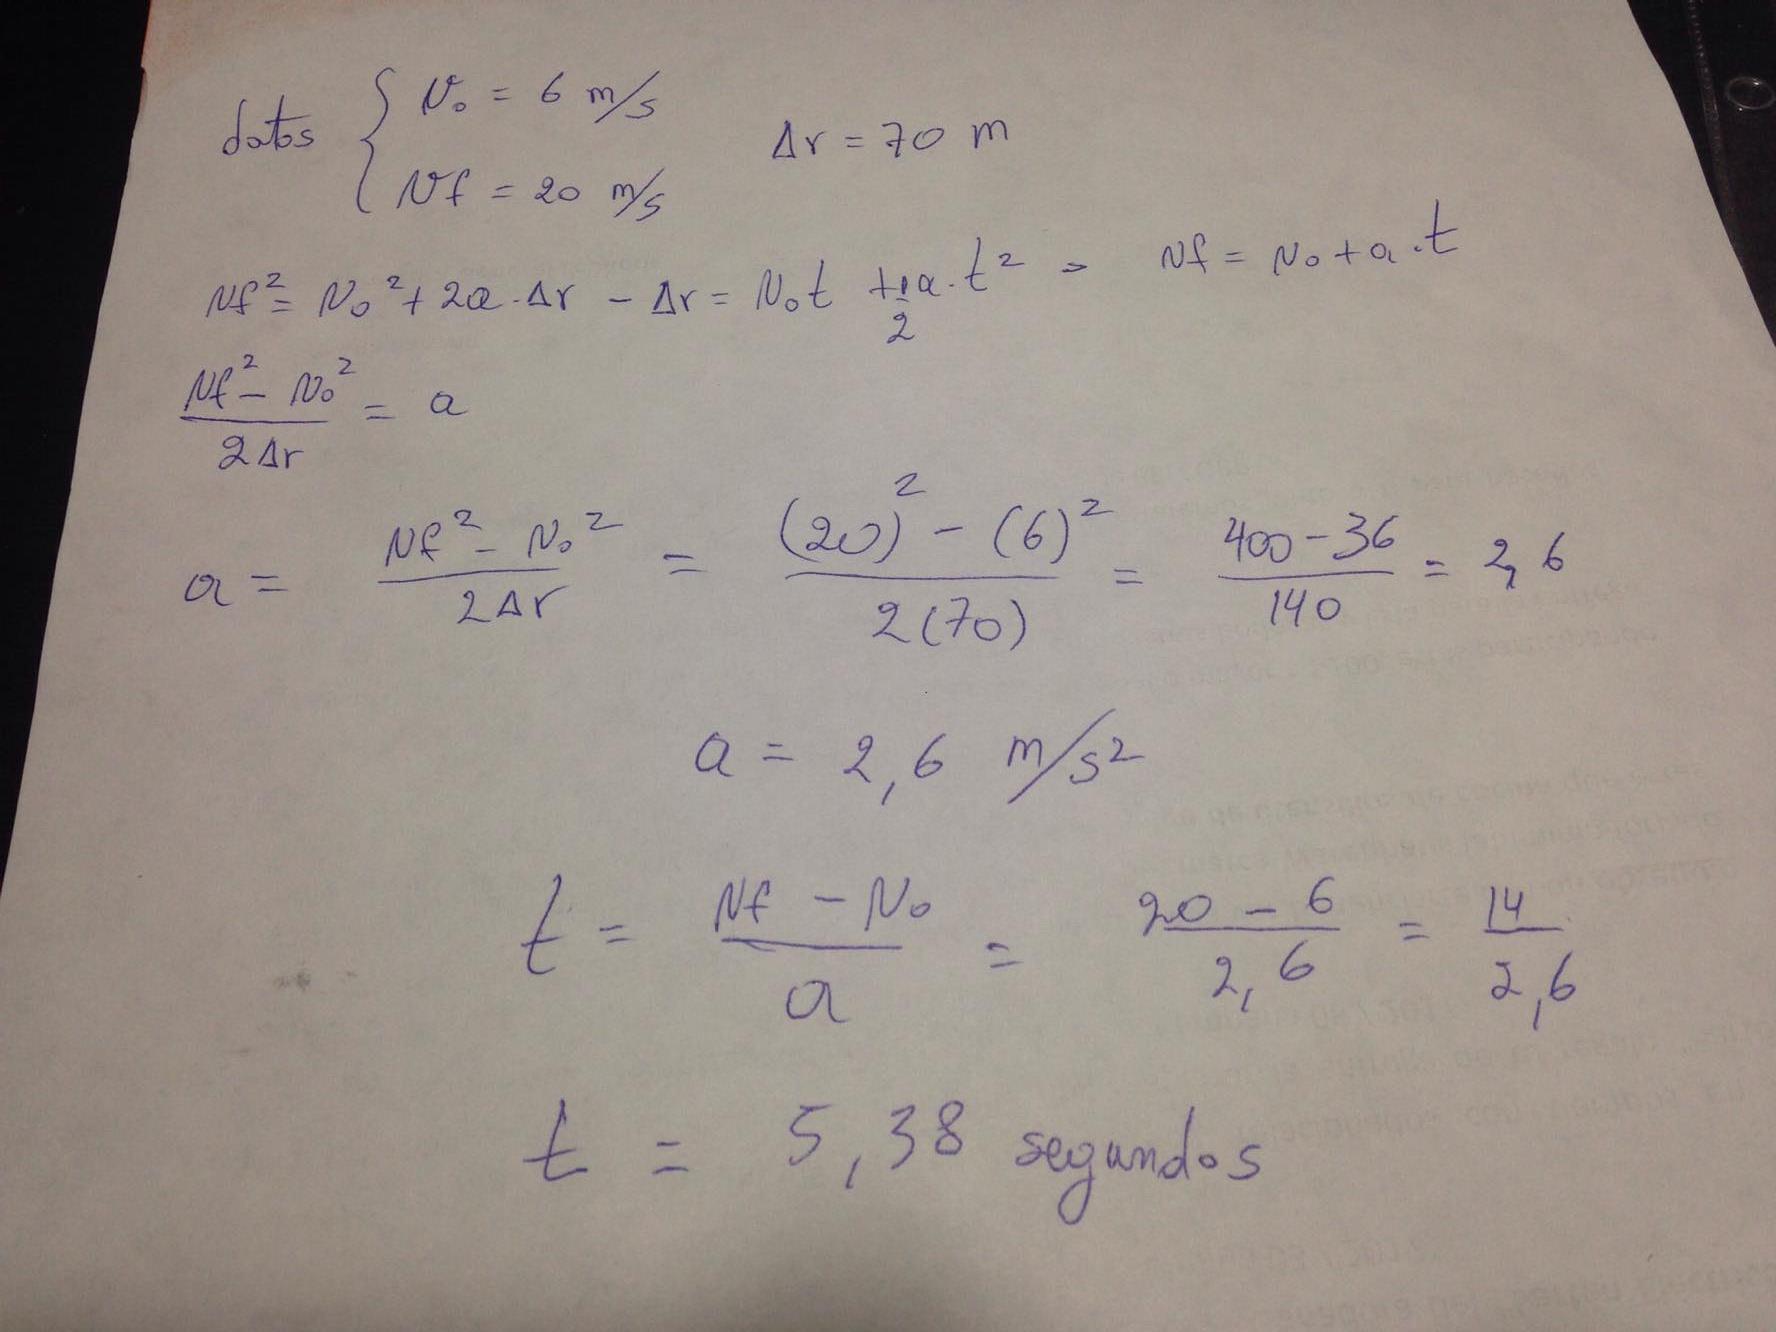 datos { V₀ = 6 m/s
Vf = 20 m/s
Δr = 70 m
Vf² = V₀² + 2a · Δr – Δr = V₀t + 1/2 a · t² → Vf = V₀ + a · t
(Vf² – V₀²) / 2Δr = a
a = (Vf² – V₀²) / 2Δr = ((20)² – (6)²) / 2(70) = (400 – 36) / 140 = 2,6
a = 2,6 m/s²
t = (Vf – V₀) / a = (20 – 6) / 2,6 = 14 / 2,6
t = 5,38 segundos